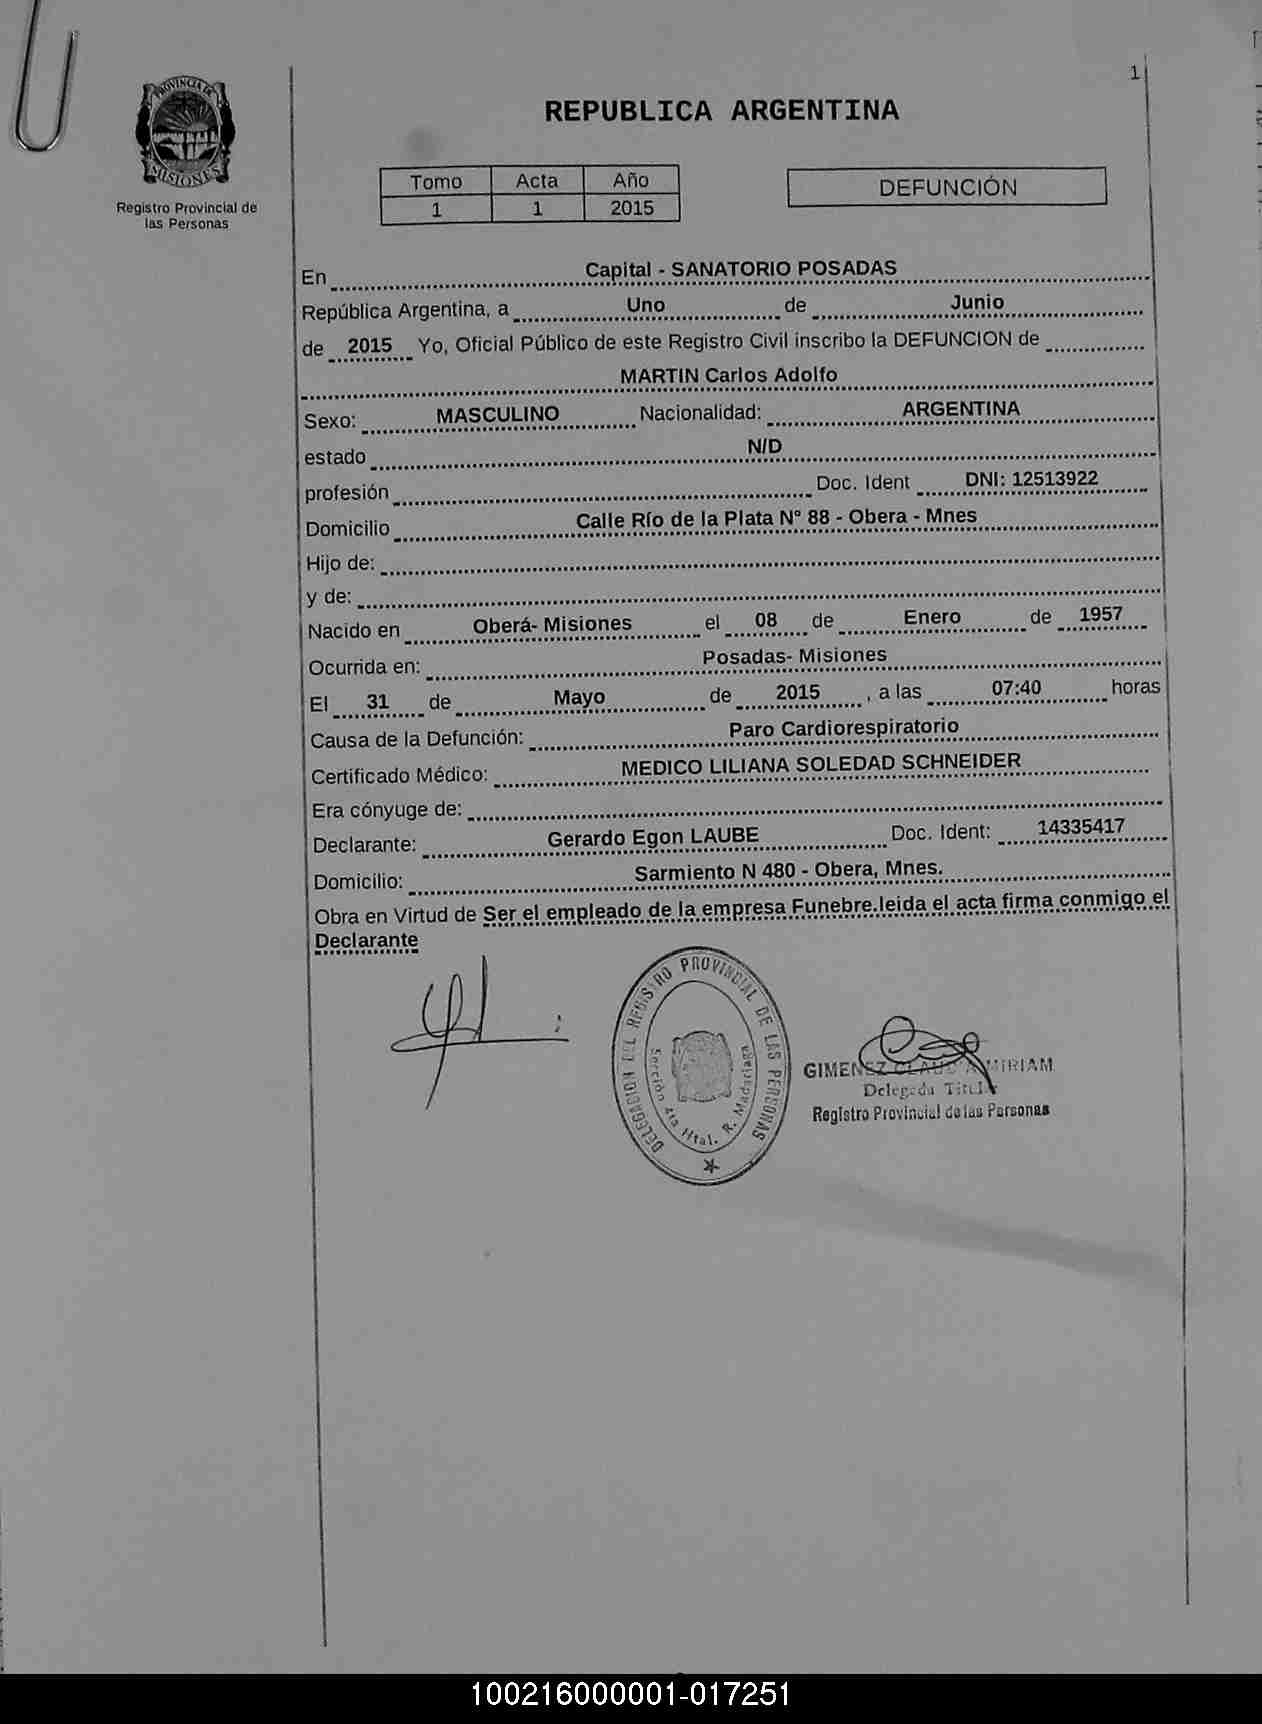 1
REPUBLICA ARGENTINA
PROVINCIA DE
MISIONES
Registro Provincial de
las Personas
Tomo Acta Año
1 1 2015
DEFUNCIÓN
En Capital - SANATORIO POSADAS
República Argentina, a Uno de Junio
de 2015 Yo, Oficial Público de este Registro Civil inscribo la DEFUNCION de
MARTIN Carlos Adolfo
Sexo: MASCULINO Nacionalidad: ARGENTINA
estado N/D
profesión Doc. Ident DNI: 12513922
Domicilio Calle Río de la Plata N° 88 - Obera - Mnes
Hijo de:
y de:
Nacido en Oberá- Misiones el 08 de Enero de 1957
Ocurrida en: Posadas- Misiones
El 31 de Mayo de 2015 , a las 07:40 horas
Causa de la Defunción: Paro Cardiorespiratorio
Certificado Médico: MEDICO LILIANA SOLEDAD SCHNEIDER
Era cónyuge de:
Declarante: Gerardo Egon LAUBE Doc. Ident: 14335417
Domicilio: Sarmiento N 480 - Obera, Mnes.
Obra en Virtud de Ser el empleado de la empresa Funebre.leida el acta firma conmigo el
Declarante
DELEGACION DEL REGISTRO PROVINCIAL DE LAS PERSONAS
Sección 4ta Htal. R. Madariaga
GIMENEZ MIRIAM
Delegada Titular
Registro Provincial de las Personas
100216000001-017251